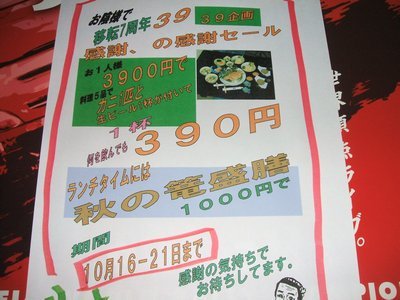 お陰様で
移転7周年 39
39企画
感謝、の感謝セール
お1人様
3900円で
料理5品で
カニ1匹と
生ビール1杯が付いて
1杯
何を飲んでも390円
ランチタイムには
秋の篭盛膳
1000円で
10月16-21日まで
感謝の気持ちで
お待ちしてます。
世界頂点